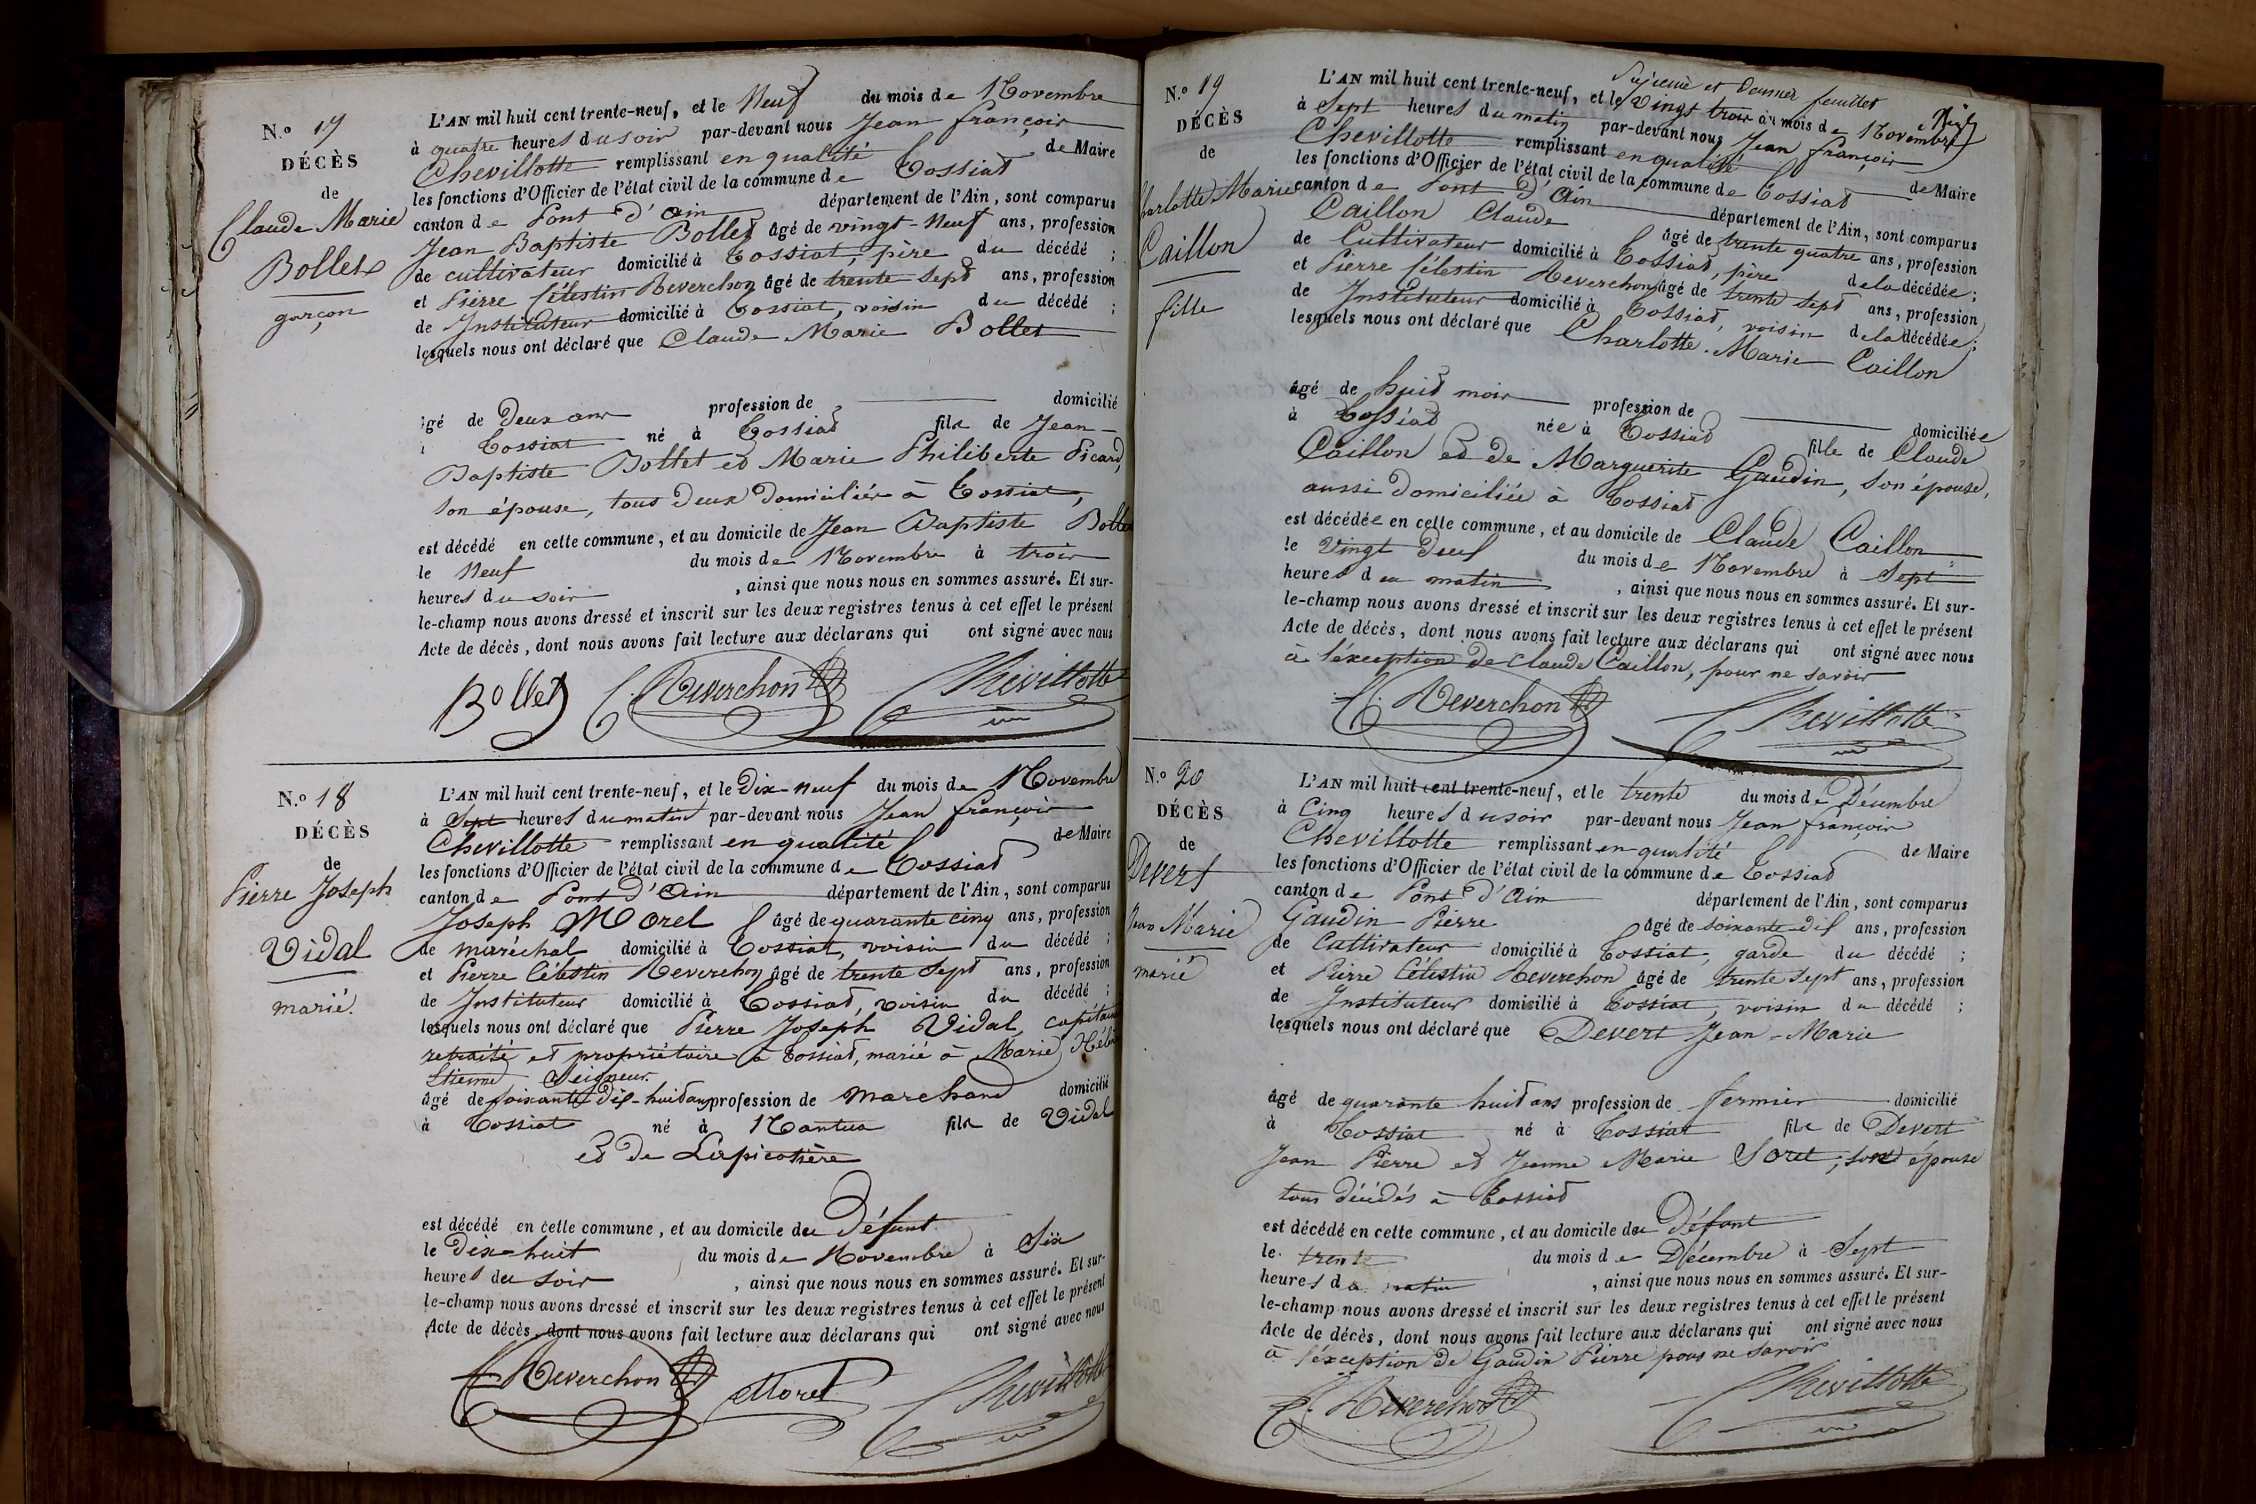 N.º 17
DÉCÈS
de
Claude Marie
Bollet
garçon
L'AN mil huit cent trente-neuf, et le Neuf du mois de Novembre
à quatre heures du soir par-devant nous Jean françois
Chevillotte remplissant en qualité de Maire
les fonctions d'Officier de l'état civil de la commune de Tossiat
canton de Pont d'ain département de l'Ain, sont comparus
Jean Baptiste Bollet âgé de vingt-Neuf ans, profession
de cultivateur domicilié à Tossiat, père du décédé ;
et Pierre Célestin Reverchon âgé de trente sept ans, profession
de Instituteur domicilié à Tossiat, voisin du décédé ;
lesquels nous ont déclaré que Claude Marie Bollet
âgé de Deux ans profession de domicilié
à Tossiat né à Tossiat fils de Jean-
Baptiste Bollet et Marie Philiberte Picard,
son épouse, tous deux domiciliés à Tossiat,
est décédé en cette commune, et au domicile de Jean Baptiste Bollet
le Neuf du mois de Novembre à trois
heures du soir, ainsi que nous nous en sommes assuré. Et sur-
le-champ nous avons dressé et inscrit sur les deux registres tenus à cet effet le présent
Acte de décès, dont nous avons fait lecture aux déclarans qui ont signé avec nous
Bollet C. Reverchon Chevillotte
N.º 18
DÉCÈS
de
Pierre Joseph
Vidal
marié.
L'AN mil huit cent trente-neuf, et le Dix-neuf du mois de Novembre
à Sept heures du matin par-devant nous Jean françois
Chevillotte remplissant en qualité de Maire
les fonctions d'Officier de l'état civil de la commune de Tossiat
canton de Pont D'Ain département de l'Ain, sont comparus
Joseph Morel âgé de quarante cinq ans, profession
de maréchal domicilié à Tossiat, voisin du décédé ;
et Pierre Célestin Reverchon âgé de trente sept ans, profession
de Instituteur domicilié à Tossiat, voisin du décédé ;
lesquels nous ont déclaré que Pierre Joseph Vidal, capitaine
retraité et propriétaire à Tossiat, marié à Marie
Etienne Seigneur.
âgé de soixante dix-huit ans profession de marchand domicilié
à Tossiat né à Nantua fils de Vidal
et de Lapicotière
est décédé en cette commune, et au domicile du Défunt
le Dix-huit du mois de Novembre à Six
heures du soir, ainsi que nous nous en sommes assuré. Et sur-
le-champ nous avons dressé et inscrit sur les deux registres tenus à cet effet le présent
Acte de décès, dont nous avons fait lecture aux déclarans qui ont signé avec nous
C. Reverchon Morel Chevillotte
et Dernier feuillet
N.º 19
DÉCÈS
de
Charlotte Marie
Caillon
fille
L'AN mil huit cent trente-neuf, et le Vingt trois du mois de Novembre
à Sept heures du matin par-devant nous Jean françois
Chevillotte remplissant en qualité de Maire
les fonctions d'Officier de l'état civil de la commune de Tossiat
canton de Pont D'Ain département de l'Ain, sont comparus
Caillon Claude âgé de trente quatre ans, profession
de Cultivateur domicilié à Tossiat, père de la décédée ;
et Pierre Célestin Reverchon âgé de trente sept ans, profession
de Instituteur domicilié à Tossiat, voisin de la décédée ;
lesquels nous ont déclaré que Charlotte-Marie Caillon
âgé de huit mois profession de domiciliée
à Tossiat née à Tossiat fille de Claude
Caillon et de Marguerite Gaudin, son épouse,
aussi domiciliée à Tossiat
est décédée en cette commune, et au domicile de Claude Caillon
le Vingt deux du mois de Novembre à Sept
heures du matin, ainsi que nous nous en sommes assuré. Et sur-
le-champ nous avons dressé et inscrit sur les deux registres tenus à cet effet le présent
Acte de décès, dont nous avons fait lecture aux déclarans qui ont signé avec nous
à l'éxception de Claude Caillon, pour ne savoir
C. Reverchon Chevillotte
N.º 20
DÉCÈS
de
Devert
Jean Marie
marié
L'AN mil huit cent trente-neuf, et le trente du mois de Décembre
à Cinq heures du soir par-devant nous Jean françois
Chevillotte remplissant en qualité de Maire
les fonctions d'Officier de l'état civil de la commune de Tossiat
canton de Pont d'Ain département de l'Ain, sont comparus
Gaudin Pierre âgé de soixante-dix ans, profession
de Cultivateur domicilié à Tossiat, garde du décédé ;
et Pierre Célestin Reverchon âgé de trente sept ans, profession
de Instituteur domicilié à Tossiat, voisin du décédé ;
lesquels nous ont déclaré que Devert Jean-Marie
âgé de quarante huit ans profession de fermier domicilié
à Tossiat né à Tossiat fils de Devert
Jean Pierre et Jeanne Marie Soret, son épouse
tous décédés à Tossiat
est décédé en cette commune, et au domicile du Défunt
le trente du mois de Décembre à Sept
heures du matin, ainsi que nous nous en sommes assuré. Et sur-
le-champ nous avons dressé et inscrit sur les deux registres tenus à cet effet le présent
Acte de décès, dont nous avons fait lecture aux déclarans qui ont signé avec nous
à l'éxception de Gaudin Pierre pour ne savoir
C. Reverchon Chevillotte